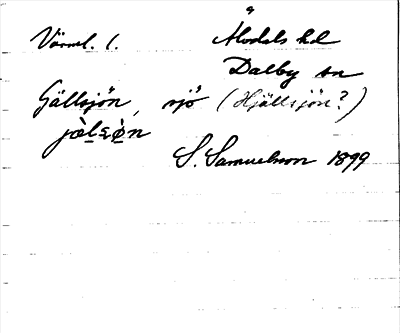 Värml. l. Älvdals hd
Dalby sn
Gällsjön, sjö (Hjällsjön?)
S. Samuelsson 1899